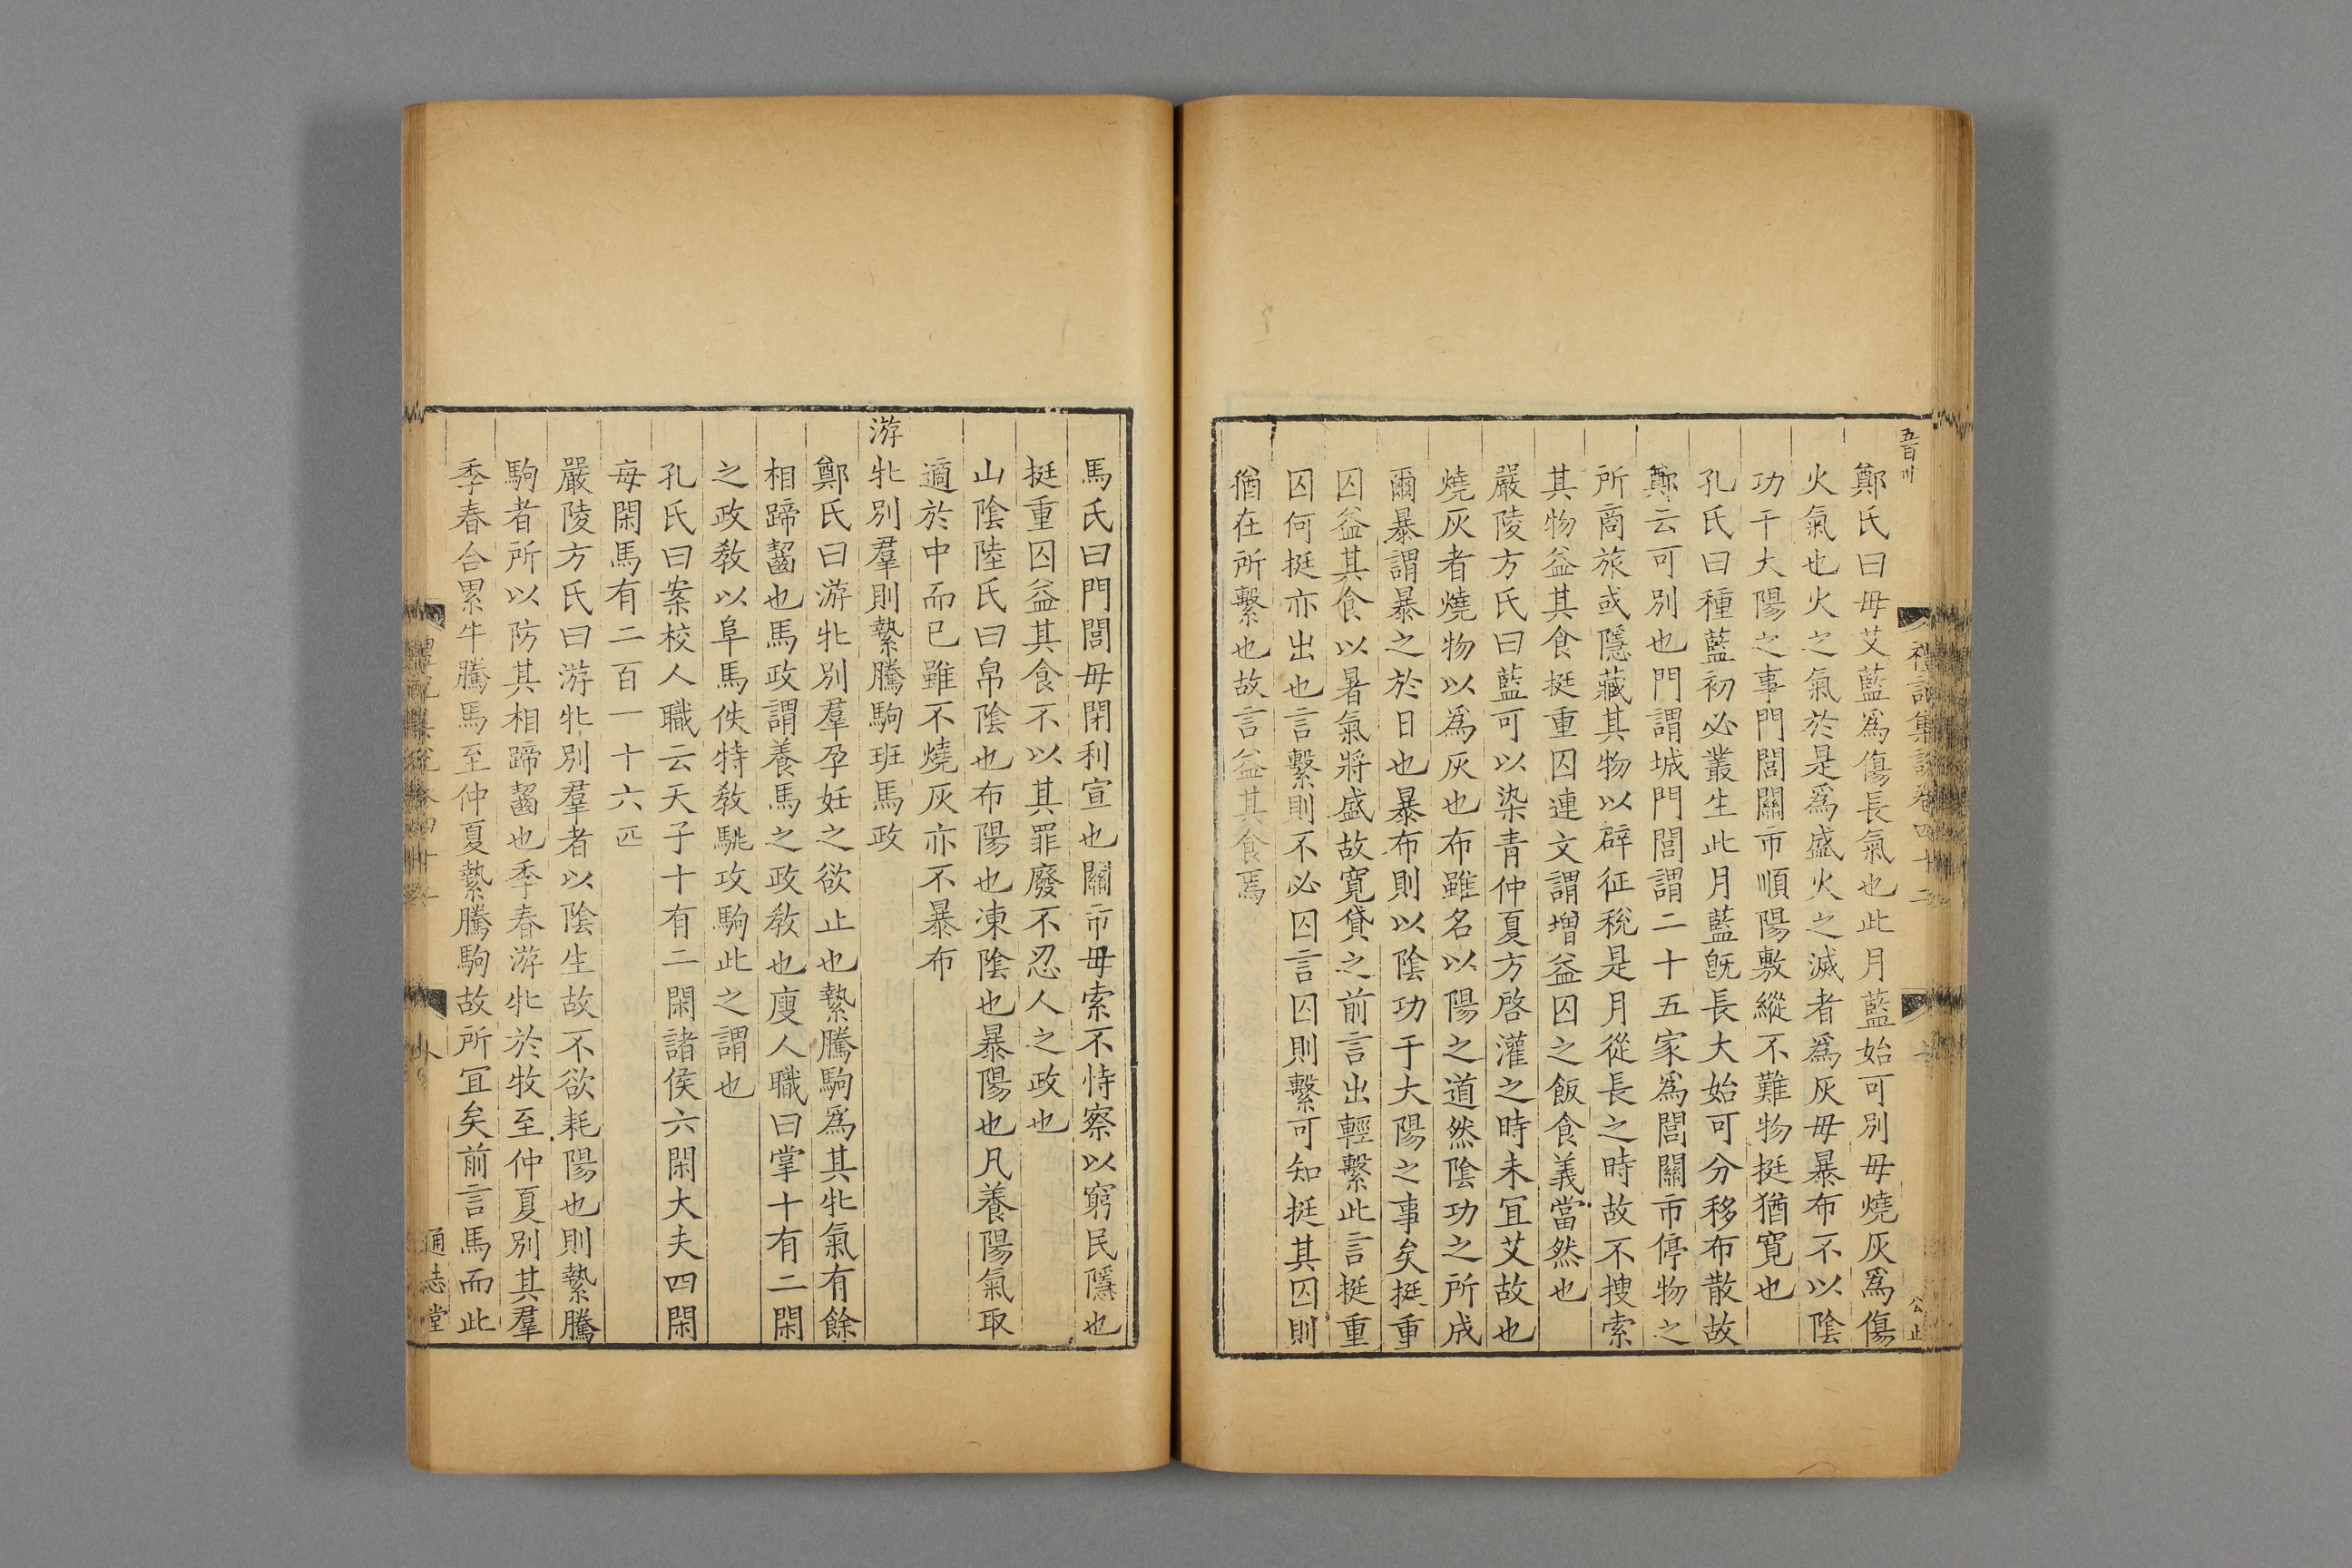 鄭氏曰毋艾藍爲傷長氣也此月藍始可別毋燒灰爲傷
火氣也火之氣於是爲盛火之滅者爲灰毋暴布不以陰
功干大陽之事門閭關市順陽敷縱不難物挺猶寬也
孔氏曰種藍初必叢生此月藍旣長大始可分移布散故
鄭云可別也門謂城門閭謂二十五家爲閭關市停物之
所商旅或隱藏其物以辟征稅是月從長之時故不搜索
其物益其食挺重囚連文謂增益囚之飯食義當然也
嚴陵方氏曰藍可以染青仲夏方啓灌之時未冝艾故也
燒灰者燒物以爲灰也布雖名以陽之道然陰功之所成
爾暴謂暴之於日也暴布則以陰功干大陽之事矣挺重
囚益其食以暑氣將盛故寬貸之前言出輕繫此言挺重
囚何挺亦出也言繫則不必囚言囚則繫可知挺其囚則
猶在所繫也故言益其食焉
馬氏曰門閭毋閉利宣也關市毋索不恃察以窮民隱也
挺重囚益其食不以其罪廢不忍人之政也
山陰陸氏曰帛陰也布陽也凍陰也暴陽也凡養陽氣取
適於中而已雖不燒灰亦不暴布
游牝別羣則縶騰駒班馬政
鄭氏曰游牝別羣孕妊之欲止也縶騰駒爲其牝氣有餘
相蹄齧也馬政謂養馬之政教也廋人職曰掌十有二閑
之政教以阜馬佚特教駣攻駒此之謂也
孔氏曰案校人職云天子十有二閑諸侯六閑大夫四閑
毎閑馬有二百一十六匹
嚴陵方氏曰游牝別羣者以陰生故不欲耗陽也則縶騰
駒者所以防其相蹄齧也季春游牝於牧至仲夏別其羣
季春合累牛騰馬至仲夏縶騰駒故所冝矣前言馬而此
通志堂